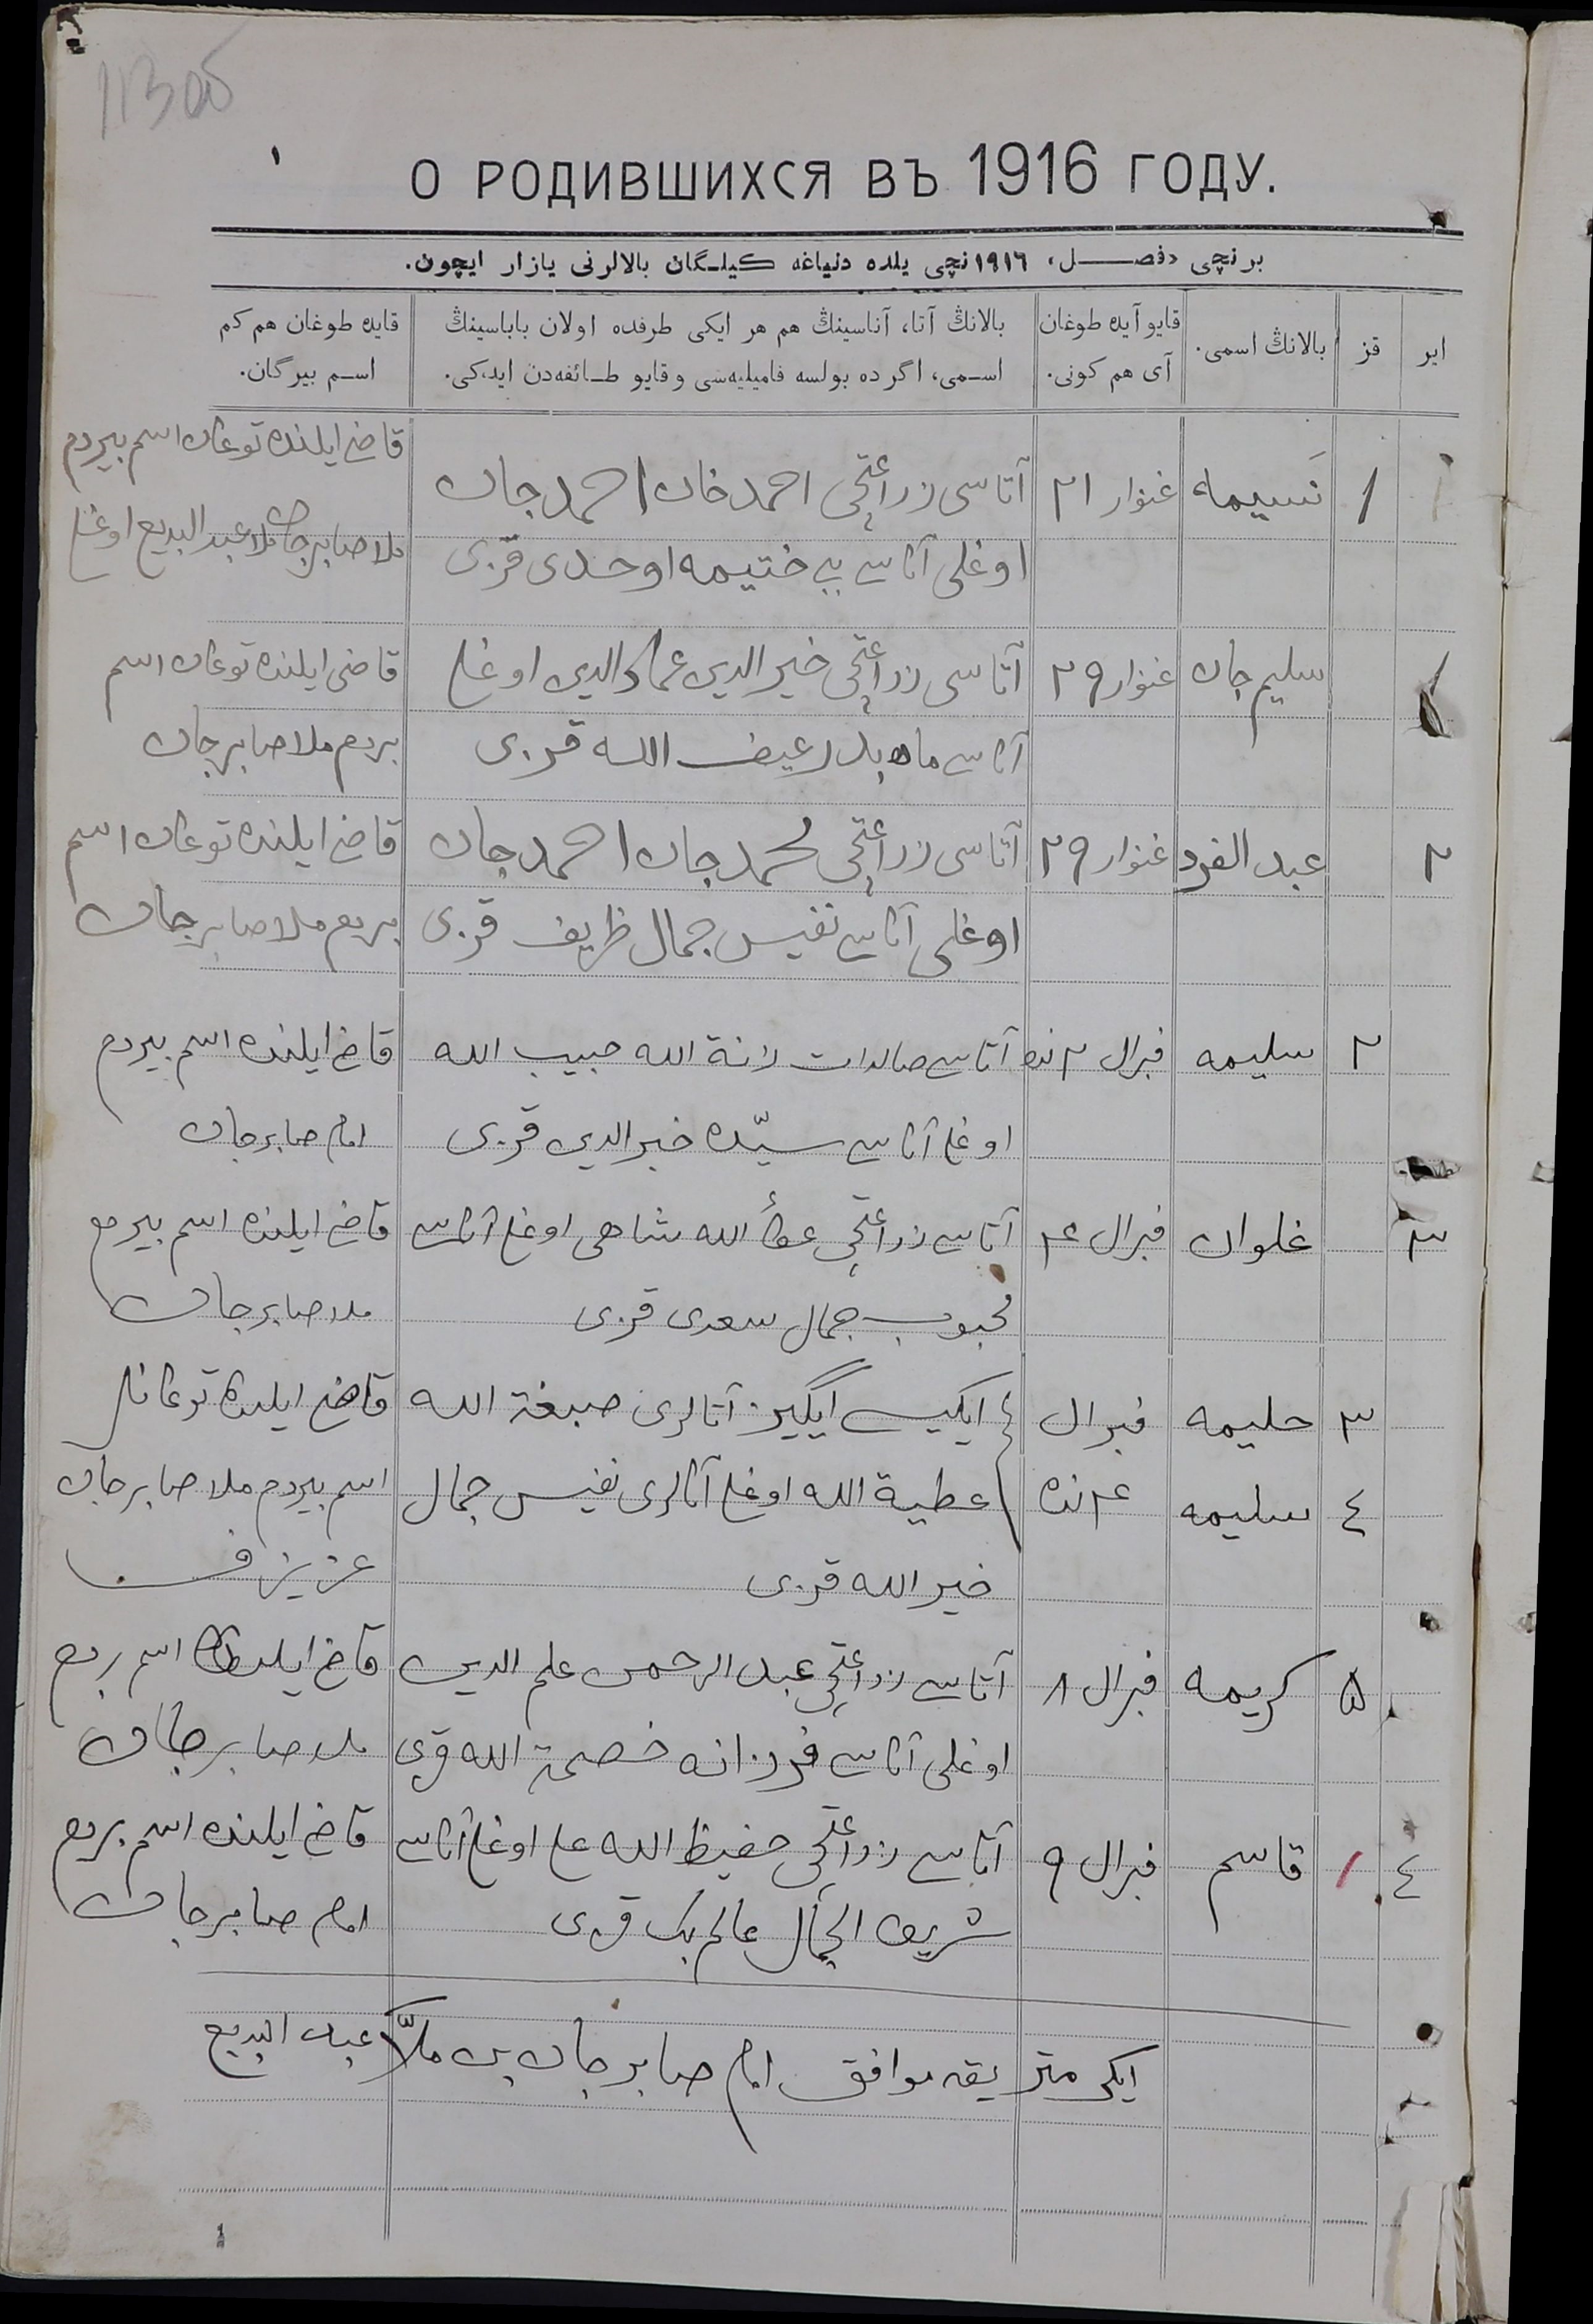 11305
О РОДИВШИХСЯ ВЪ 1916 ГОДУ.
برنچی «فصل» ١٩١٦نچی یلده دنیاغه کیلگان بالالرنی یازار ایچون.
ایر
قز
بالانڭ اسمی.
قایو آیده طوغان
آی هم کونی.
بالانڭ آتا، آناسینڭ هم هر ایکی طرفده اولان باباسینڭ
اسمی، اگرده بولسه فامیلیه‌سی و قایو طائفه‌دن ایدکی.
قایده طوغان هم کم
اسم بیرگان.
١ نسیمه غنوار ٢١ آتاسی زراعتچی احمدخان احمدجان
اوغلی آناسی بی ختیمه اوحدی قزی
قاضی ایلنده توغان اسم بیردم
ملا صابرجان ملا عبدالبدیع اوغلی
١ سلیم جان غنوار ٢٩ آتاسی زراعتچی خیرالدین عمادالدین اوغلی
آناسی ماه بدر الله قزی
قاضی ایلنده توغان اسم
بردم ملا صابرجان
٢ عبد الفرد غنوار ٢٩ آتاسی زراعتچی محمدجان احمدجان
اوغلی آناسی نفیس جمال ظریف قزی
قاضی ایلنده توغان اسم
بردم ملا صابرجان
٢ سلیمه فبرال ٢نده آتاسی صالدات الله حبیب الله
اوغلی آناسی سیّده خیرالدین قزی
قاضی ایلنده اسم بیردم
امام صابرجان
٣ غلوان فبرال ٤ آتاسی زراعتچی عطأ الله شاهی اوغلی آناسی
محبوب جمال سعدی قزی
قاضی ایلنده اسم بیردم
ملا صابرجان
٣ حلیمه فبرال ایکیسی ایگیز آتالری صبغة الله
٤ سلیمه ٤نده عطیة الله اوغلی آنالری نفیس جمال
خیر الله قزی
قاضی ایلنده توغانلر
اسم بیردم ملا صابرجان
عزیزف
٥ کریمه فبرال ٨ آتاسی زراعتچی عبد الرحمن علم الدین
اوغلی آناسی فرزانه الله قزی
قاضی ایلنده اسم بردم
ملا صابرجان
٤ قاسم فبرال ٩ آتاسی زراعتچی حفیظ الله علی اوغلی آناسی
شریف الجمال عالم بک قزی
قاضی ایلنده اسم بردم
امام صابرجان
ایکی متریقه موافق امام صابرجان بن ملاّ عبد البدیع
1